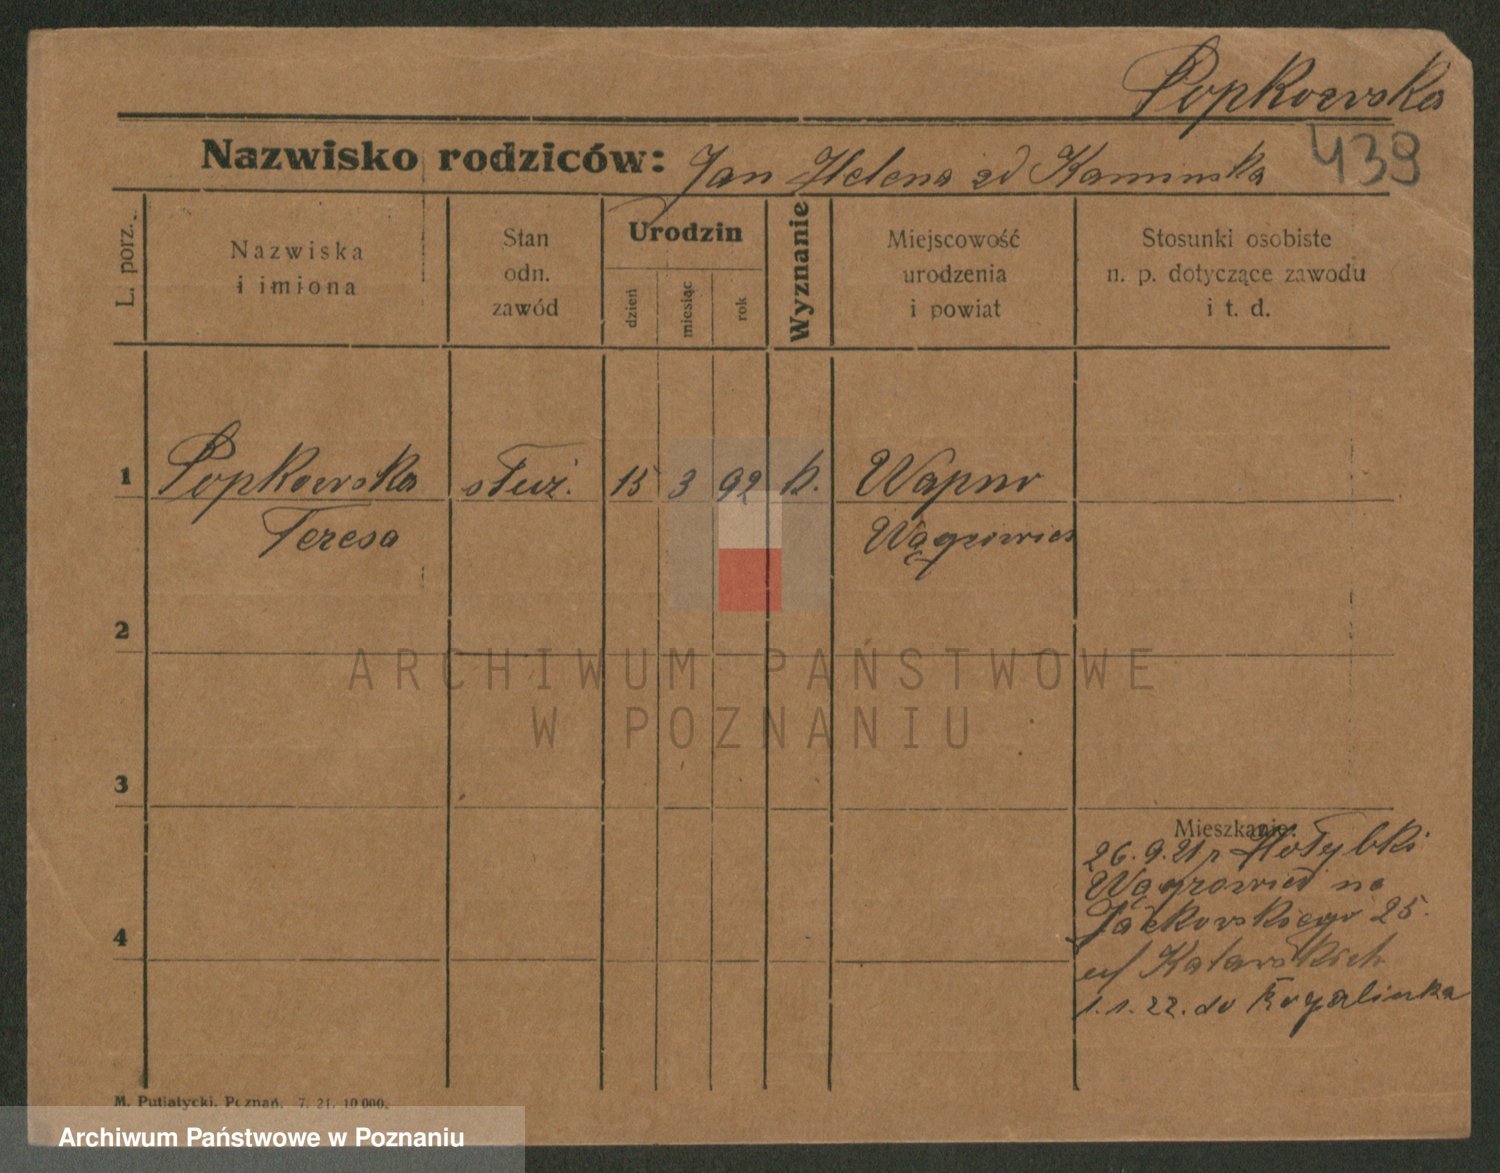 Popkowska
439
Nazwisko rodziców: Jan Helena zd Kaminska
L. porz.
Nazwiska
i imiona
Stan
odn.
zawód
Urodzin
dzień
miesiąc
rok
Wyznanie
Miejscowość
urodzenia
i powiat
Stosunki osobiste
n. p. dotyczące zawodu
i t. d.
1 Popkowska służ. 15 3 92 k. Wapno
Teresa Wągrowiec
2
3
Mieszkanie:
26.9.21 r
Wągrowiec na
Jackowskiego 25.
4
1.1.22. do Rogalinka
M. Putiatycki, Poznań. 7. 21. 10 000.
ARCHIWUM PAŃSTWOWE
W POZNANIU
Archiwum Państwowe w Poznaniu